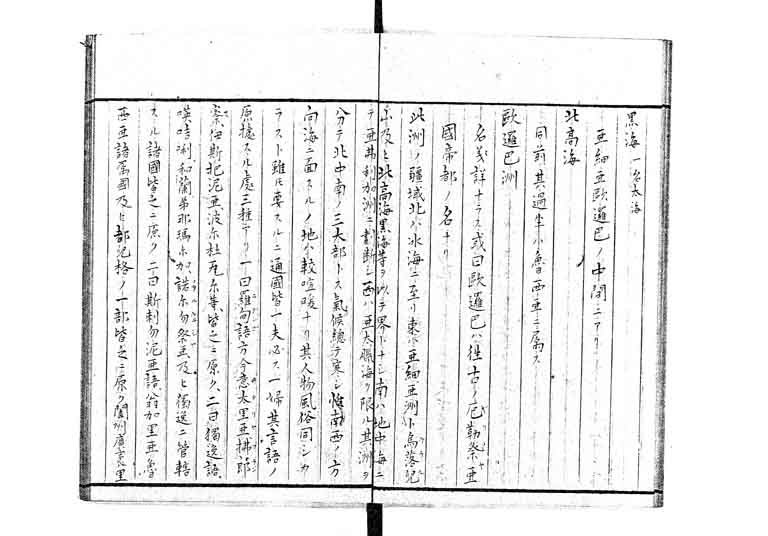 黒海 一名太海
亜細亜歐邏巴ノ中間ニアリ
北高海
同前其過半ハ魯西亜ニ属ス
歐邏巴洲
名義詳ナラス或曰歐邏巴ハ徃古ノ厄勒祭亜
國帝部ノ名ナリ
此洲ノ疆域北ハ氷海ニ至リ東ハ亜細亜洲ト烏落
山及ヒ北高海黒海等ヲ以テ界トナシ南ハ地中海ニ
テ亜弗利加洲ニ劃断シ西ハ亜太臘海ヲ限ル其洲ヲ
分テ北中南ノ三大部トス氣候總テ寒シ惟南西ノ方
向海ニ面スルノ地ハ較喧暖ナリ其人物風俗同シカ
ラスト雖ドモ要スルニ通國皆一夫必ス一婦其言語ノ
原據スル處三種アリ一曰羅甸語方今意太里亜拂郎
察伊斯把泥亜波尓杜瓦尓等皆之ニ原ク二曰獨逸語
暎咭唎和蘭弟那瑪尓加諾尓勿祭亜及ヒ獨逸ニ管轄
スル諸國皆之ニ原ク三曰斯剌勿泥亜語翁加里亜魯
西亜諸属國及ヒ都児格ノ一部皆之ニ原ク闔州廣袤里